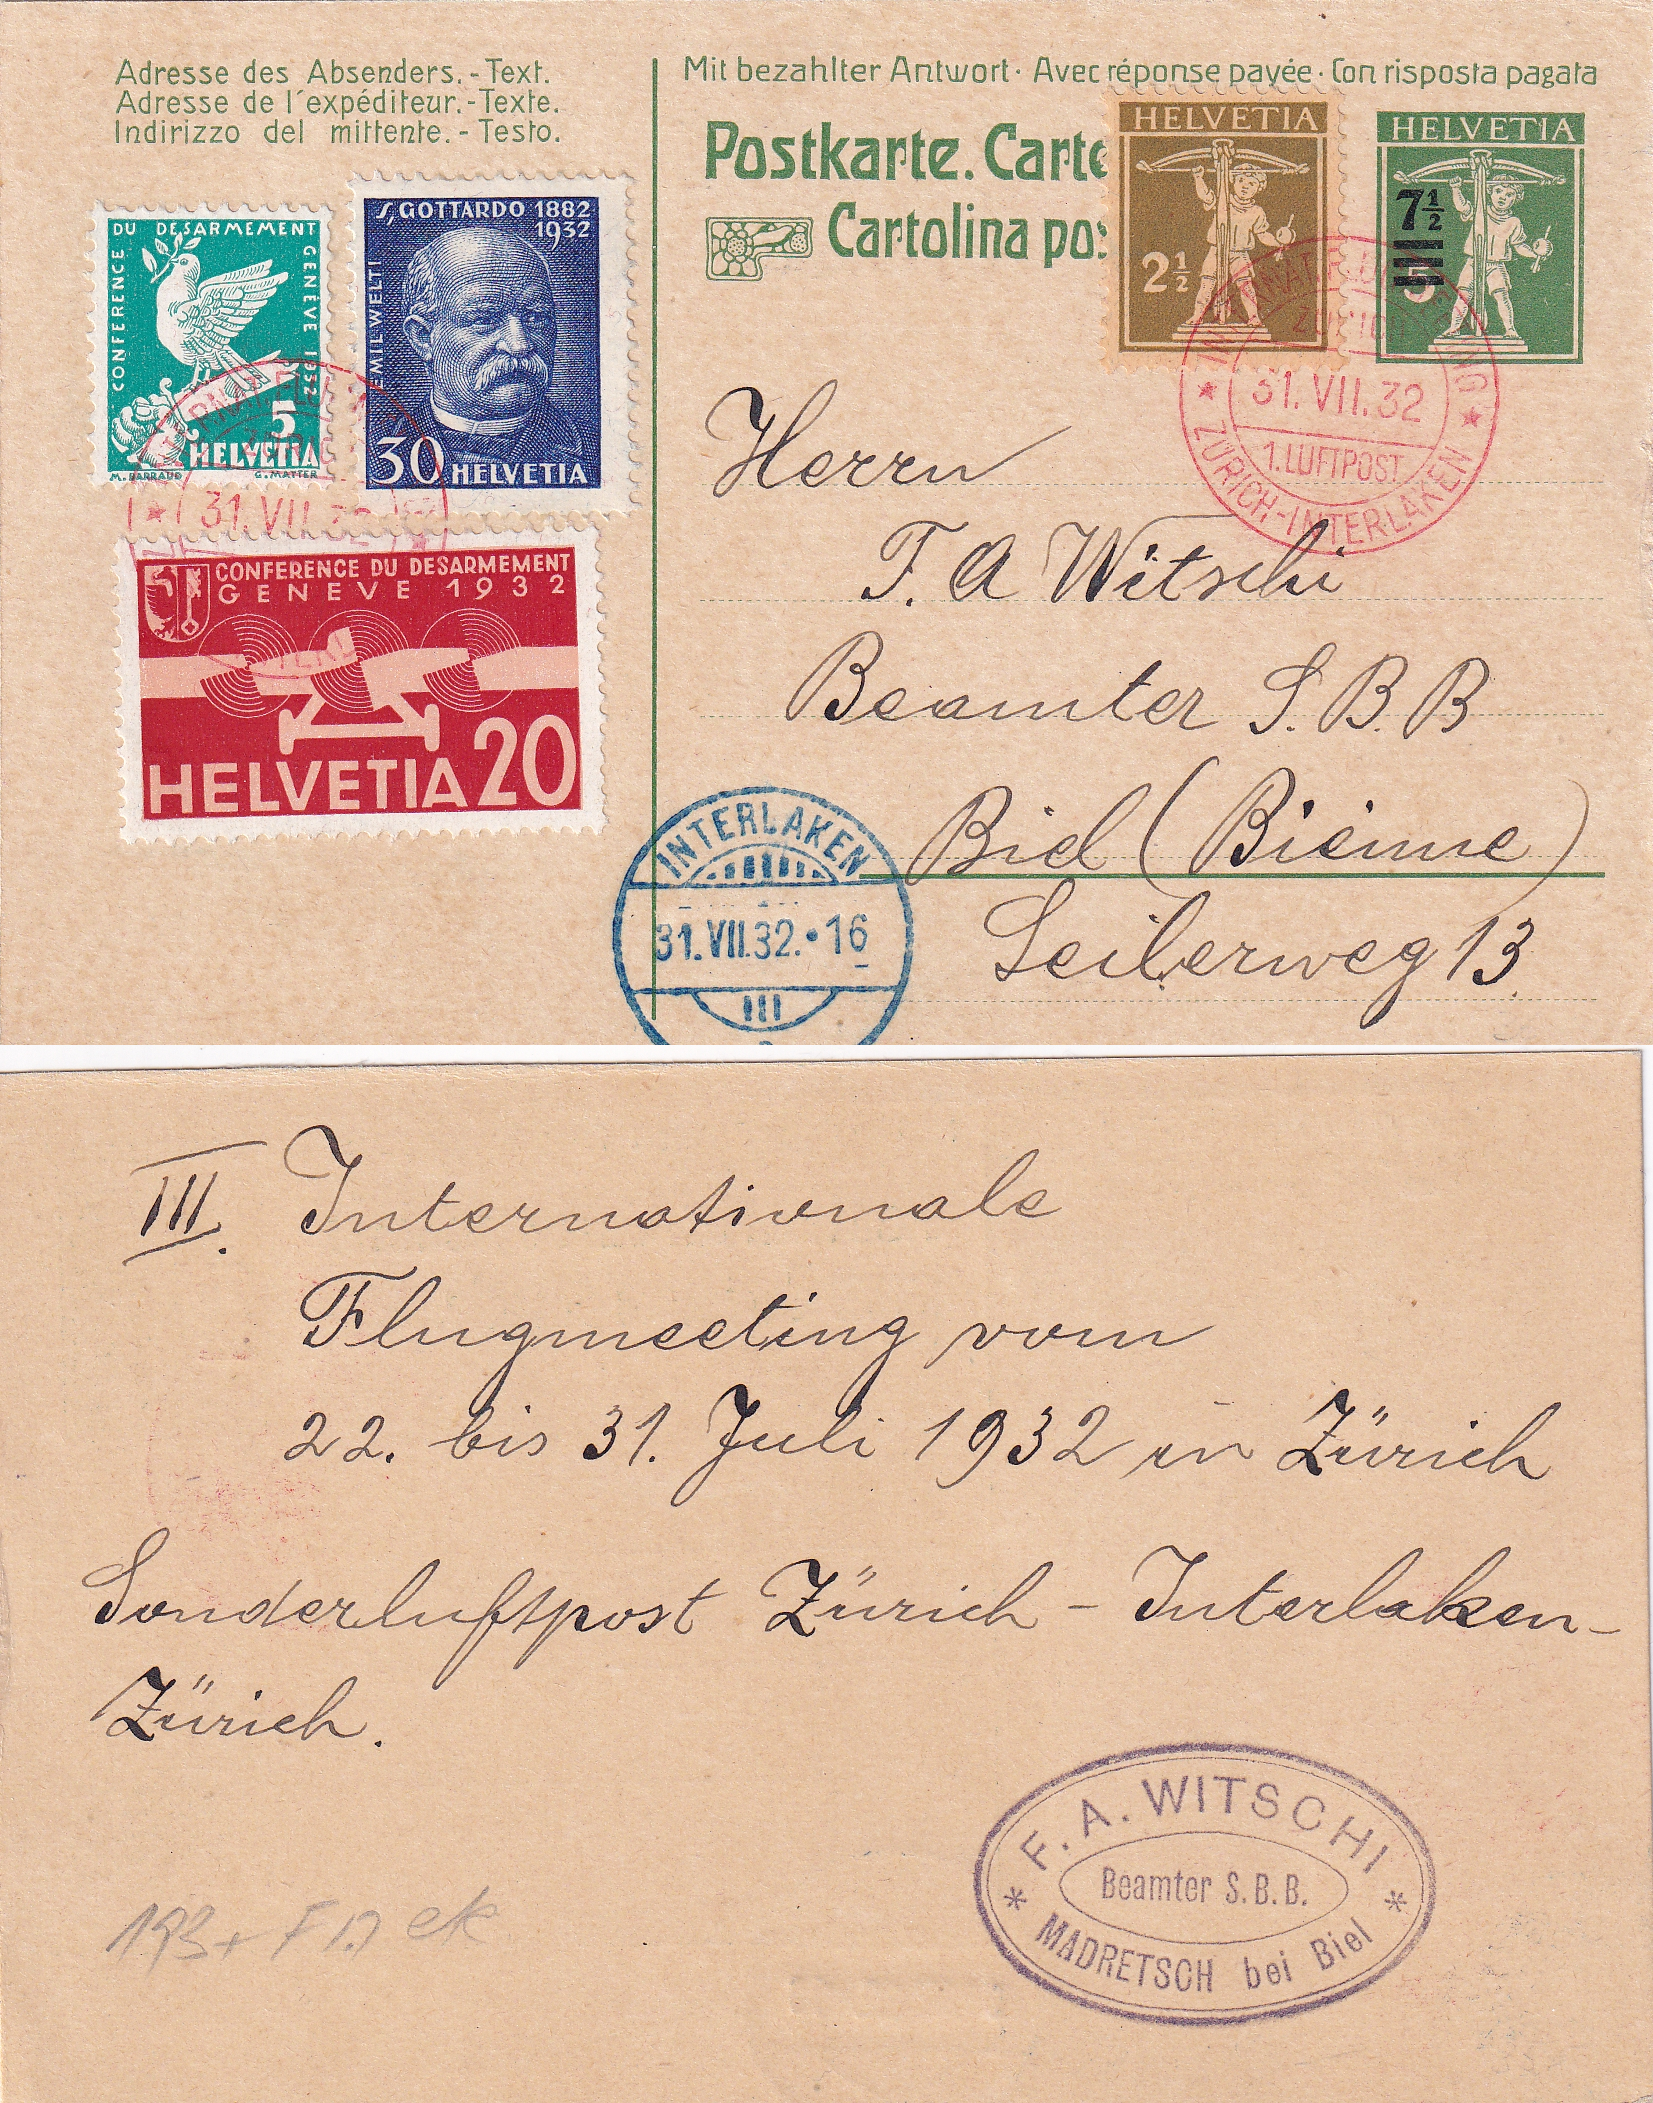 Adresse des Absenders.-Text.
Adresse de l'expéditeur.-Texte.
Indirizzo del mittente.-Testo.
Mit bezahlter Antwort· Avec réponse payée· Con risposta pagata
Postkarte. Carte
Cartolina pos
HELVETIA
2½
HELVETIA
7½
5
CONFERENCE DU DESARMEMENT GENÈVE 1932
5
HELVETIA
M. BARRAUD G. MATTER
S. GOTTARDO 1882
1932
EMIL WELTI
30 HELVETIA
31. VII. 32
CONFERENCE DU DESARMEMENT
GENEVE 1932
HELVETIA 20
31. VII. 32
1. LUFTPOST
ZÜRICH-INTERLAKEN
Herrn
F. A Witschi
Beamter S. B. B
Biel (Bienne)
Seilerweg 13.
INTERLAKEN
31.VII.32.•16
III. Internationale
Flugmeeting vom
22. bis 31. Juli 1932 in Zürich
Sonderluftpost Zürich - Interlaken-
Zürich.
F. A. WITSCHI
Beamter S.B.B.
MADRETSCH bei Biel